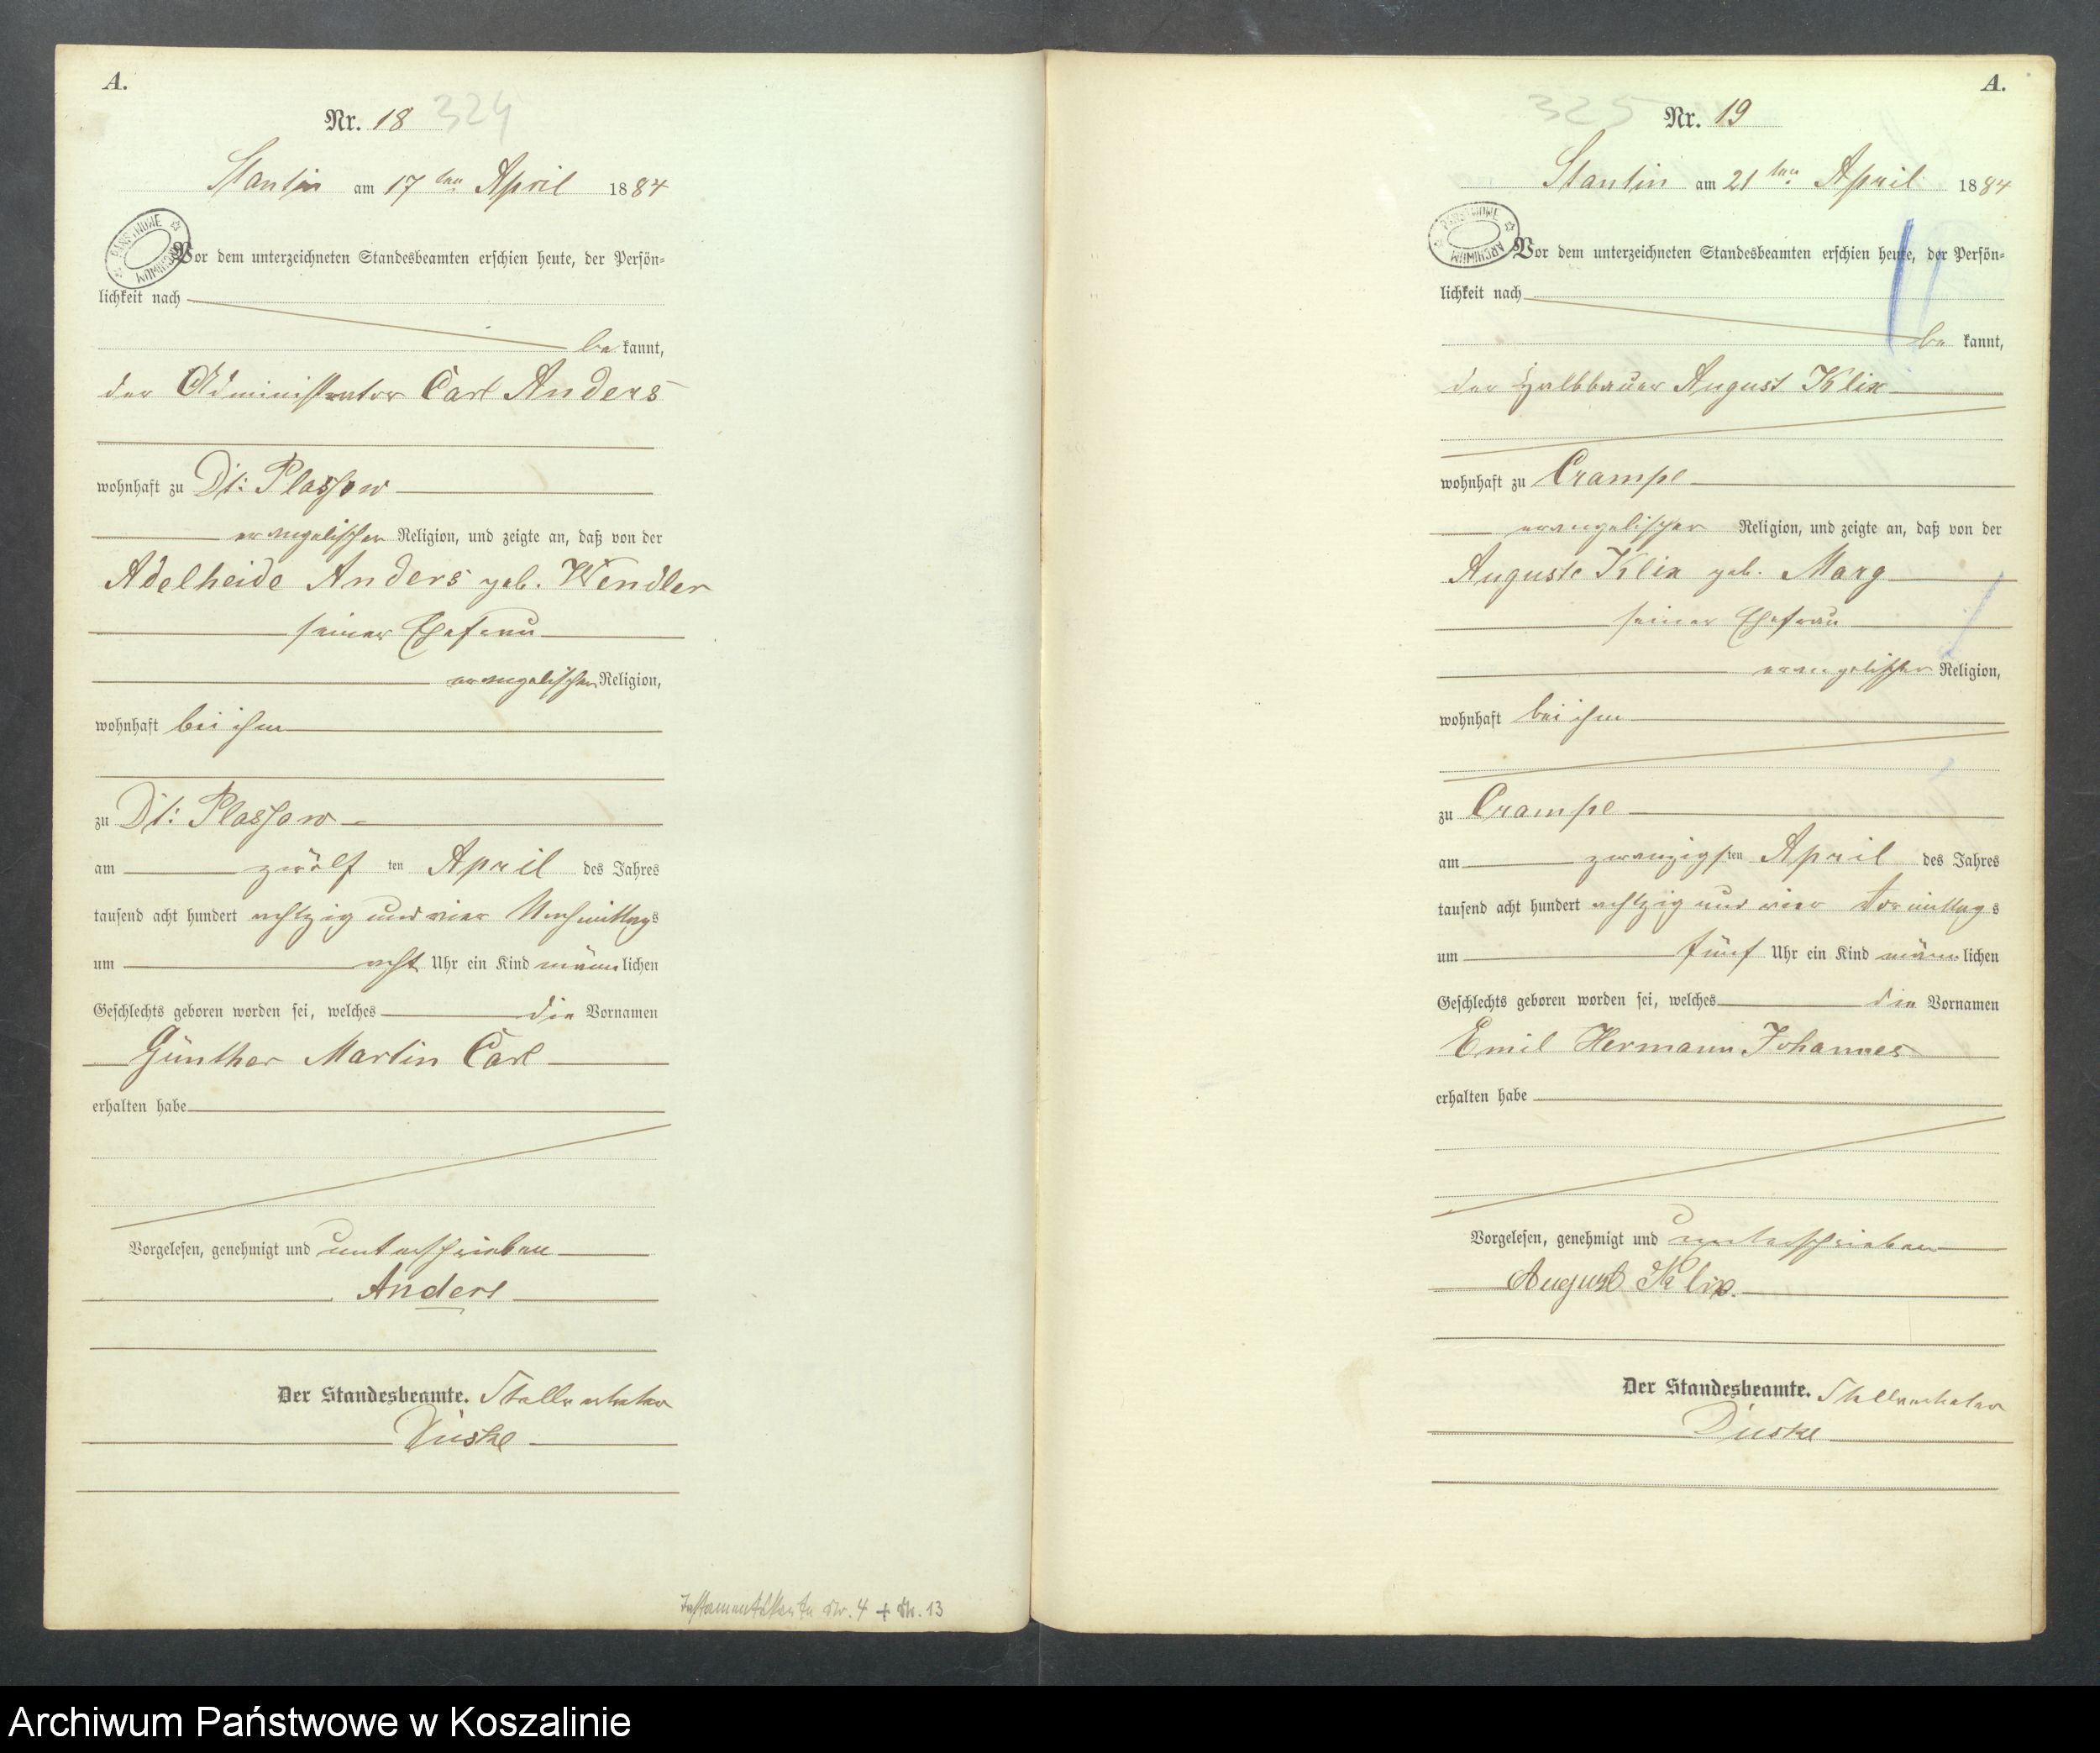 A.
Nr. 18 324
Stantin am 17ten April 1884
Vor dem unterzeichneten Standesbeamten erschien heute, der Persön-
lichkeit nach
be kannt,
der Administrator Carl Anders
wohnhaft zu Dt: Plassow
evangelischer Religion, und zeigte an, daß von der
Adelheide Anders geb. Wendler
seiner Ehefrau
evangelischer Religion,
wohnhaft bei ihm
zu Dt: Plassow
am zwölf ten April des Jahres
tausend acht hundert achtzig und vier Nachmittags
um acht Uhr ein Kind männlichen
Geschlechts geboren worden sei, welches die Vornamen
Günther Martin Carl
erhalten habe
Vorgelesen, genehmigt und unterschrieben
Anders
Der Standesbeamte. Stellvertreter
Duske
Testamentskartei Nr. 4 + Nr. 13
A.
325 Nr. 19
Stantin am 21ten April 1884
PANSTWOWE ARCHIWUM
Vor dem unterzeichneten Standesbeamten erschien heute, der Persön-
lichkeit nach
be kannt,
der Halbbauer August Klix
wohnhaft zu Crampe
evangelischer Religion, und zeigte an, daß von der
Auguste Klix geb. Marg
seiner Ehefrau
evangelischer Religion,
wohnhaft bei ihm
zu Crampe
am zwanzigsten April des Jahres
tausend acht hundert achtzig und vier Vormittags
um fünf Uhr ein Kind männlichen
Geschlechts geboren worden sei, welches die Vornamen
Emil Hermann Johannes
erhalten habe
Vorgelesen, genehmigt und unterschrieben
August Klix.
Der Standesbeamte. Stellvertreter
Duske
Archiwum Państwowe w Koszalinie